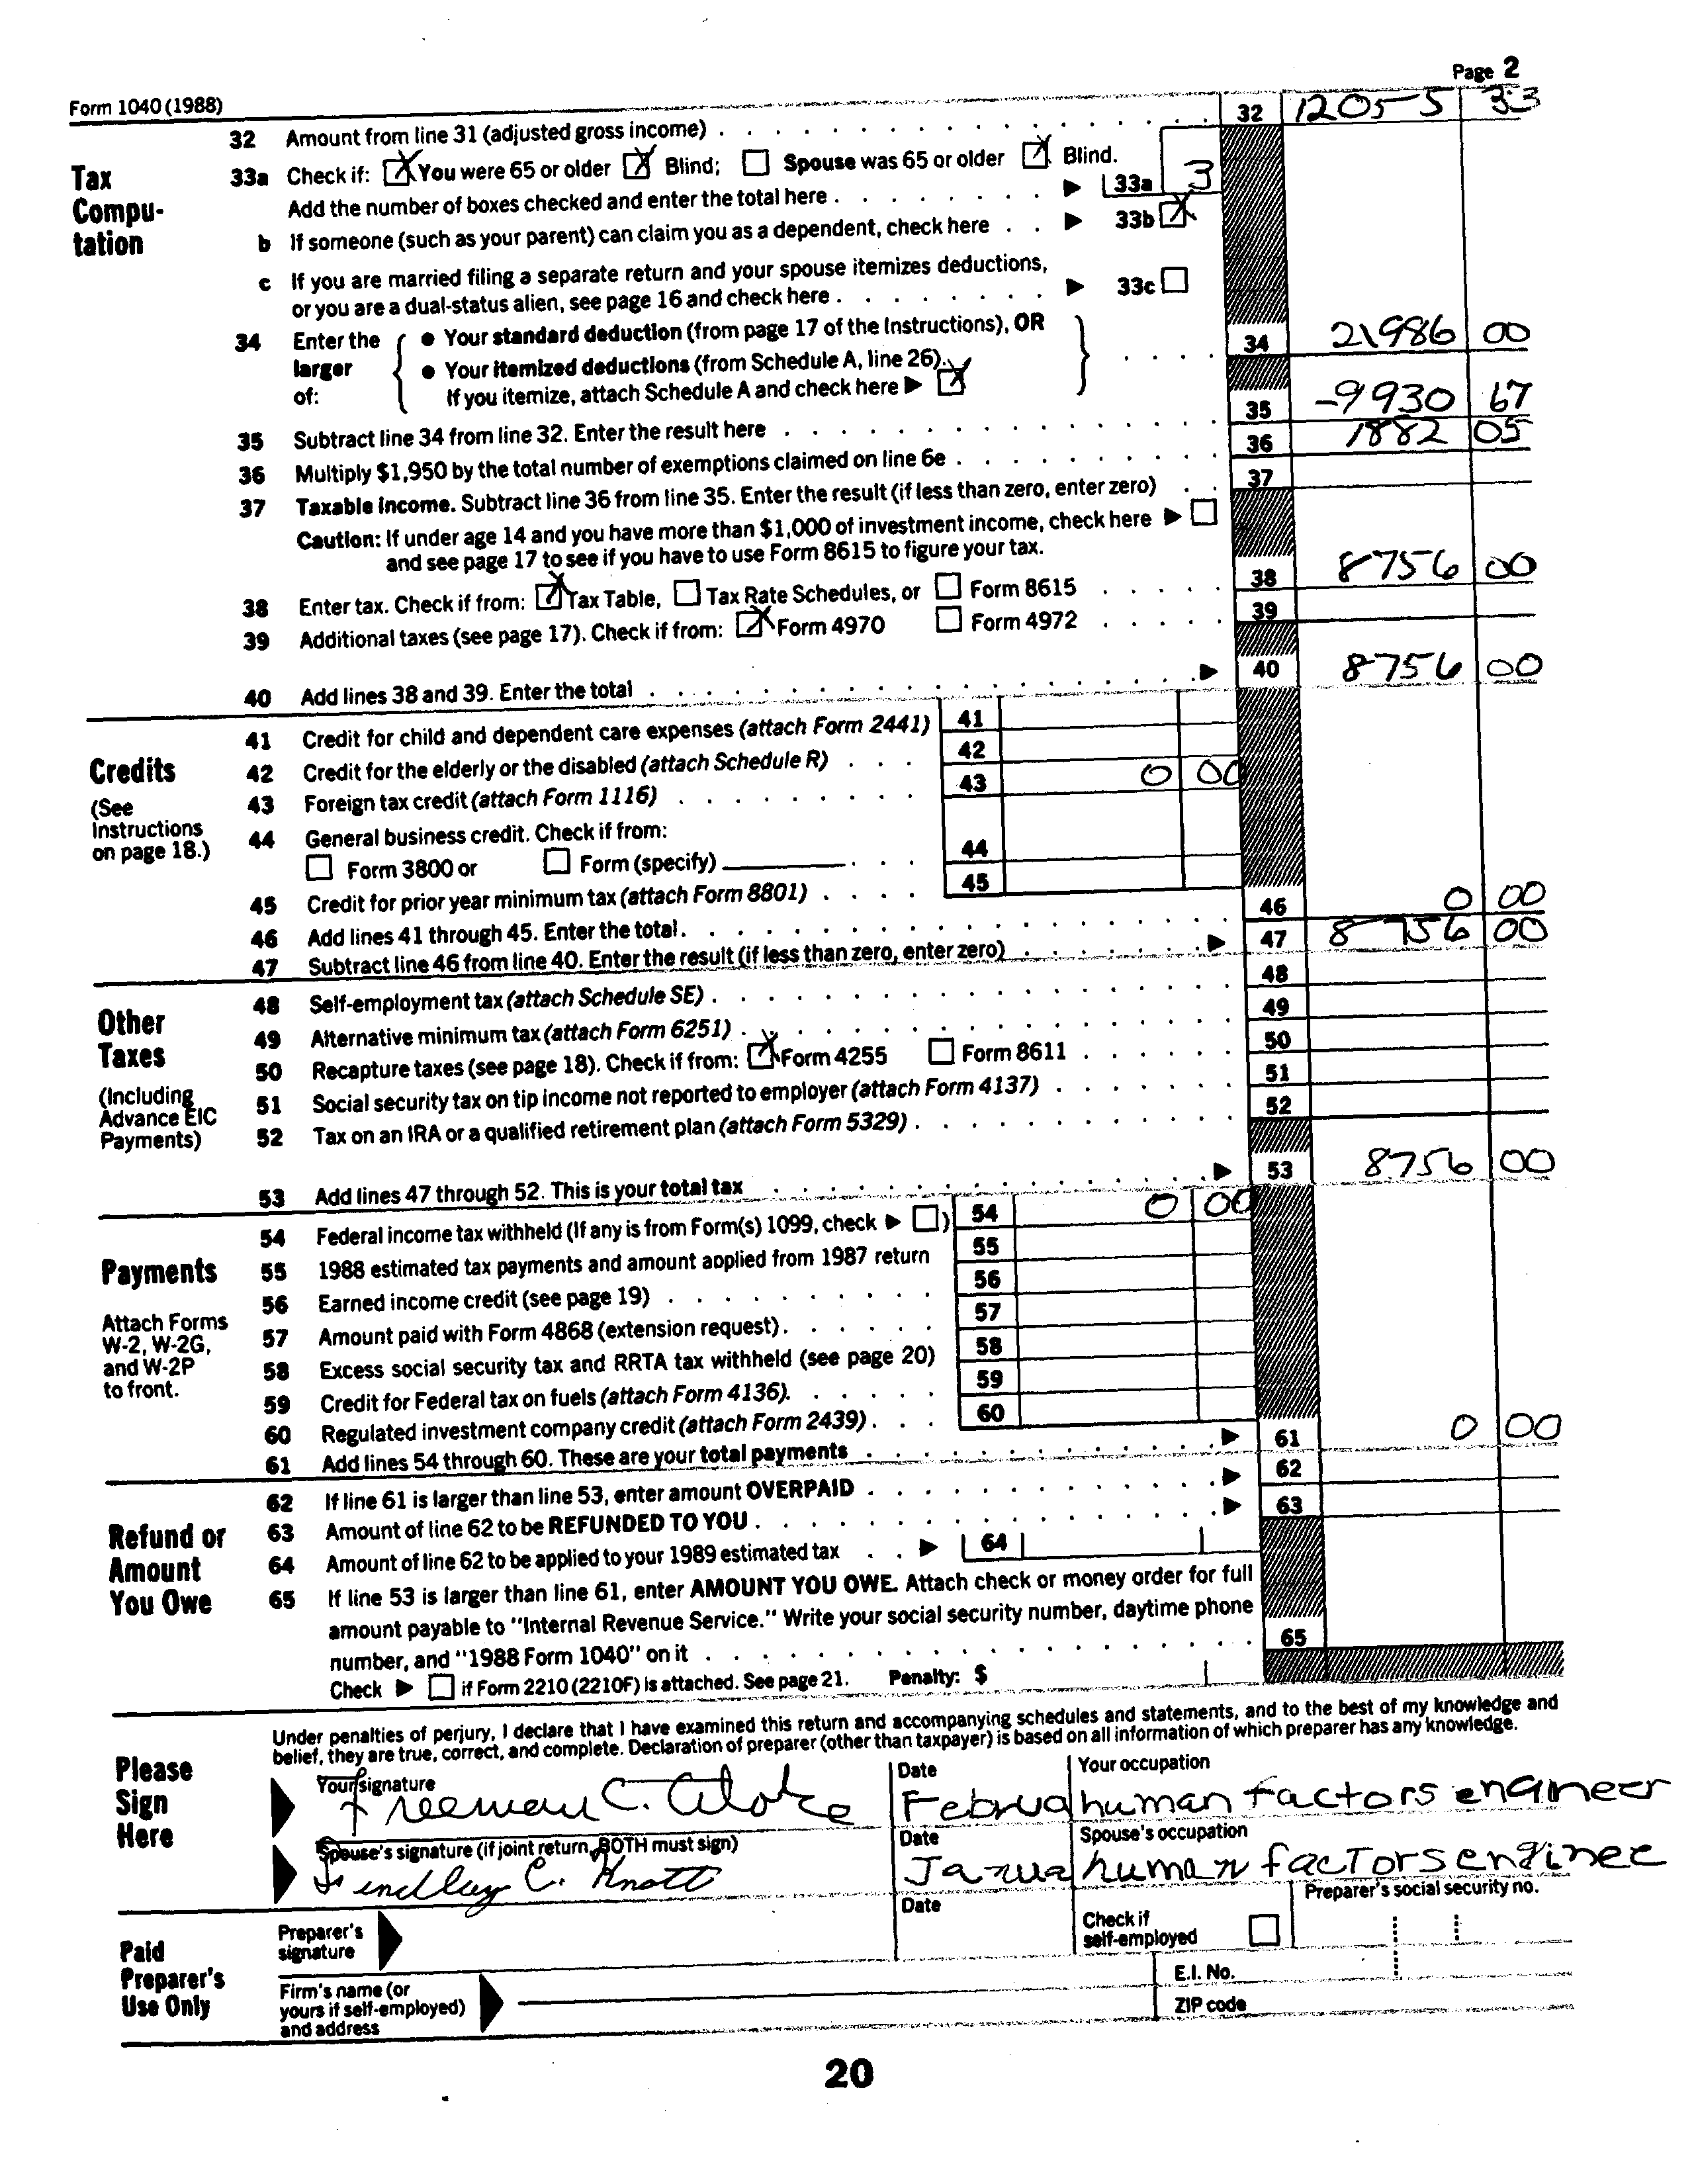 Form 1040 (1988)
Page 2
Tax Computation
32 Amount from line 31 (adjusted gross income) 32 12055 33
33a Check if: You were 65 or older Blind; Spouse was 65 or older Blind.
Add the number of boxes checked and enter the total here 33a 3
b If someone (such as your parent) can claim you as a dependent, check here 33b
c If you are married filing a separate return and your spouse itemizes deductions,
or you are a dual-status alien, see page 16 and check here 33c
34 Enter the larger of:
• Your standard deduction (from page 17 of the Instructions), OR
• Your itemized deductions (from Schedule A, line 26).
If you itemize, attach Schedule A and check here
34 21986 00
35 Subtract line 34 from line 32. Enter the result here 35 -9930 67
36 Multiply $1,950 by the total number of exemptions claimed on line 6e 36 1882 05
37 Taxable income. Subtract line 36 from line 35. Enter the result (if less than zero, enter zero) 37
Caution: If under age 14 and you have more than $1,000 of investment income, check here
and see page 17 to see if you have to use Form 8615 to figure your tax.
38 Enter tax. Check if from: Tax Table, Tax Rate Schedules, or Form 8615 38 8756 00
39 Additional taxes (see page 17). Check if from: Form 4970 Form 4972 39
40 Add lines 38 and 39. Enter the total 40 8756 00
Credits
(See Instructions on page 18.)
41 Credit for child and dependent care expenses (attach Form 2441) 41
42 Credit for the elderly or the disabled (attach Schedule R) 42
43 Foreign tax credit (attach Form 1116) 43 0 00
44 General business credit. Check if from:
Form 3800 or Form (specify) 44
45 Credit for prior year minimum tax (attach Form 8801) 45
46 Add lines 41 through 45. Enter the total 46 0 00
47 Subtract line 46 from line 40. Enter the result (if less than zero, enter zero) 47 8756 00
Other Taxes
(Including Advance EIC Payments)
48 Self-employment tax (attach Schedule SE) 48
49 Alternative minimum tax (attach Form 6251) 49
50 Recapture taxes (see page 18). Check if from: Form 4255 Form 8611 50
51 Social security tax on tip income not reported to employer (attach Form 4137) 51
52 Tax on an IRA or a qualified retirement plan (attach Form 5329) 52
53 Add lines 47 through 52. This is your total tax 53 8756 00
Payments
Attach Forms W-2, W-2G, and W-2P to front.
54 Federal income tax withheld (If any is from Form(s) 1099, check ) 54 0 00
55 1988 estimated tax payments and amount applied from 1987 return 55
56 Earned income credit (see page 19) 56
57 Amount paid with Form 4868 (extension request) 57
58 Excess social security tax and RRTA tax withheld (see page 20) 58
59 Credit for Federal tax on fuels (attach Form 4136) 59
60 Regulated investment company credit (attach Form 2439) 60
61 Add lines 54 through 60. These are your total payments 61 0 00
Refund or Amount You Owe
62 If line 61 is larger than line 53, enter amount OVERPAID 62
63 Amount of line 62 to be REFUNDED TO YOU 63
64 Amount of line 62 to be applied to your 1989 estimated tax 64
65 If line 53 is larger than line 61, enter AMOUNT YOU OWE. Attach check or money order for full
amount payable to "Internal Revenue Service." Write your social security number, daytime phone
number, and "1988 Form 1040" on it 65
Check if Form 2210 (2210F) is attached. See page 21. Penalty: $
Please Sign Here
Under penalties of perjury, I declare that I have examined this return and accompanying schedules and statements, and to the best of my knowledge and
belief, they are true, correct, and complete. Declaration of preparer (other than taxpayer) is based on all information of which preparer has any knowledge.
Your signature Date Your occupation
Freeman C. Februa human factors engineer
Spouse's signature (if joint return, BOTH must sign) Date Spouse's occupation
C. Knott Janua human factors enginee
Paid Preparer's Use Only
Preparer's signature Date Check if self-employed Preparer's social security no.
Firm's name (or yours if self-employed) and address
E.I. No.
ZIP code
20